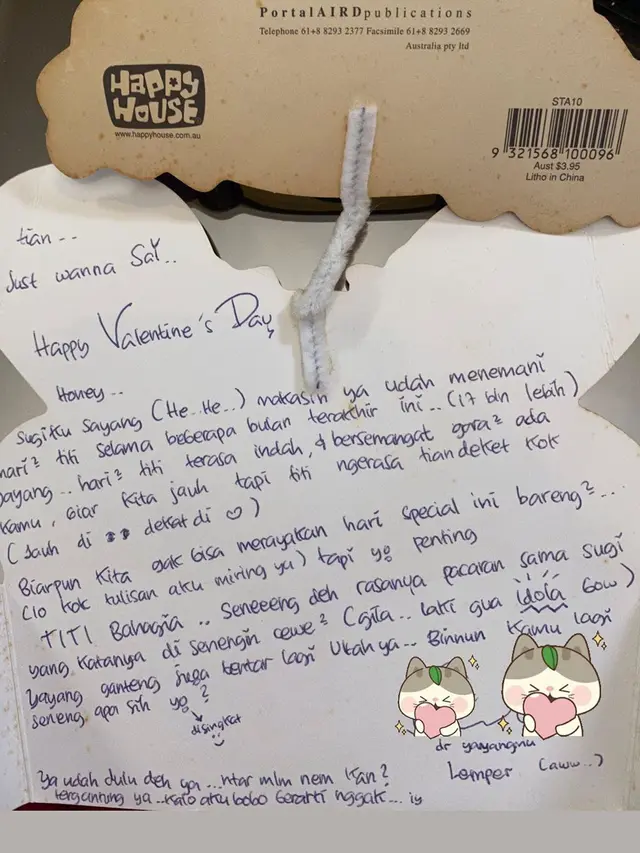 PortalAIRDpublications
Telephone 61+8 8293 2377 Facsimile 61+8 8293 2669
Australia pty ltd
HAPPY
HOUSE
www.happyhouse.com.au
STA10
9 321568 100096
Aust $3.95
Litho in China
tian --
Just wanna Say..
Happy Valentine's Day
Honey --
Sugiku Sayang (He..He..) makasih ya udah menemani
hari² titi selama beberapa bulan terakhir ini .. (17 bln lebih)
sayang .. hari² titi terasa indah, & bersemangat gara² ada
kamu, biar kita jauh tapi titi ngerasa tian deket kok
(Jauh di 👀 dekat di ♡)
Biarpun kita gak bisa merayakan hari special ini bareng²...
(lo kok tulisan aku miring ya) tapi yg penting
TITI Bahagia .. Seneeeng deh rasanya pacaran sama sugi
yang katanya di senengin cewe² (gila.. laki gua idola bow)
Yayang ganteng juga bentar lagi Ultah ya.. Binnun kamu lagi
seneng apa sih yg?
disingkat
dr yayangmu
Lemper (aww..)
Ya udah dulu deh ya ...ntar mlm nem kan?
tergantung ya ..kalo aku bobo berarti nggak... iy